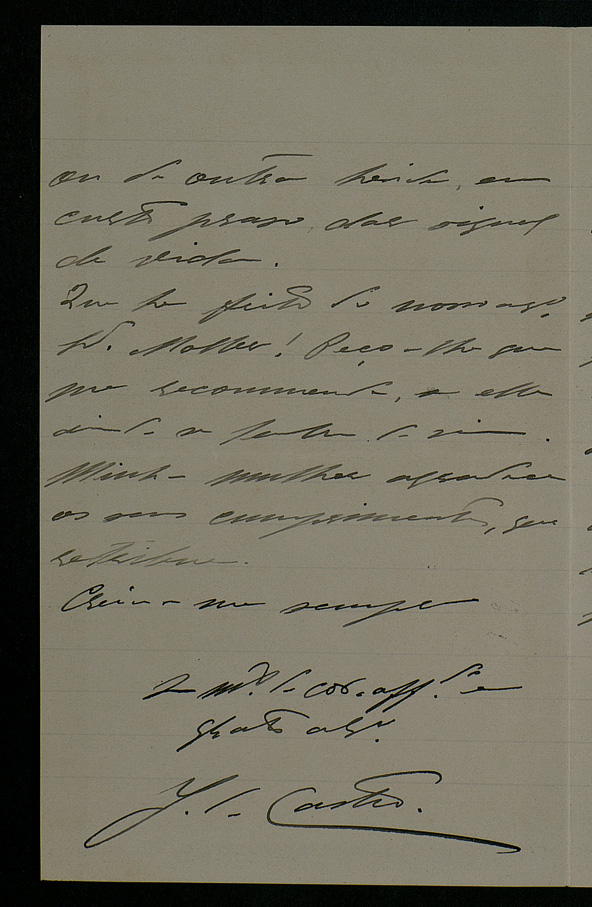 ou de outra ha, em
curto praso, dar signal
de vida.
Que he feito do nosso am.º
Dr. Moller! Peço-lhe que
me recommende, a elle
ainda se fallar de mim.
Minha mulher agradece
os seus cumprimentos, que
retribue.
Creia-me sempre
De m.to de cor. aff.do e
grato
J. de Castro.